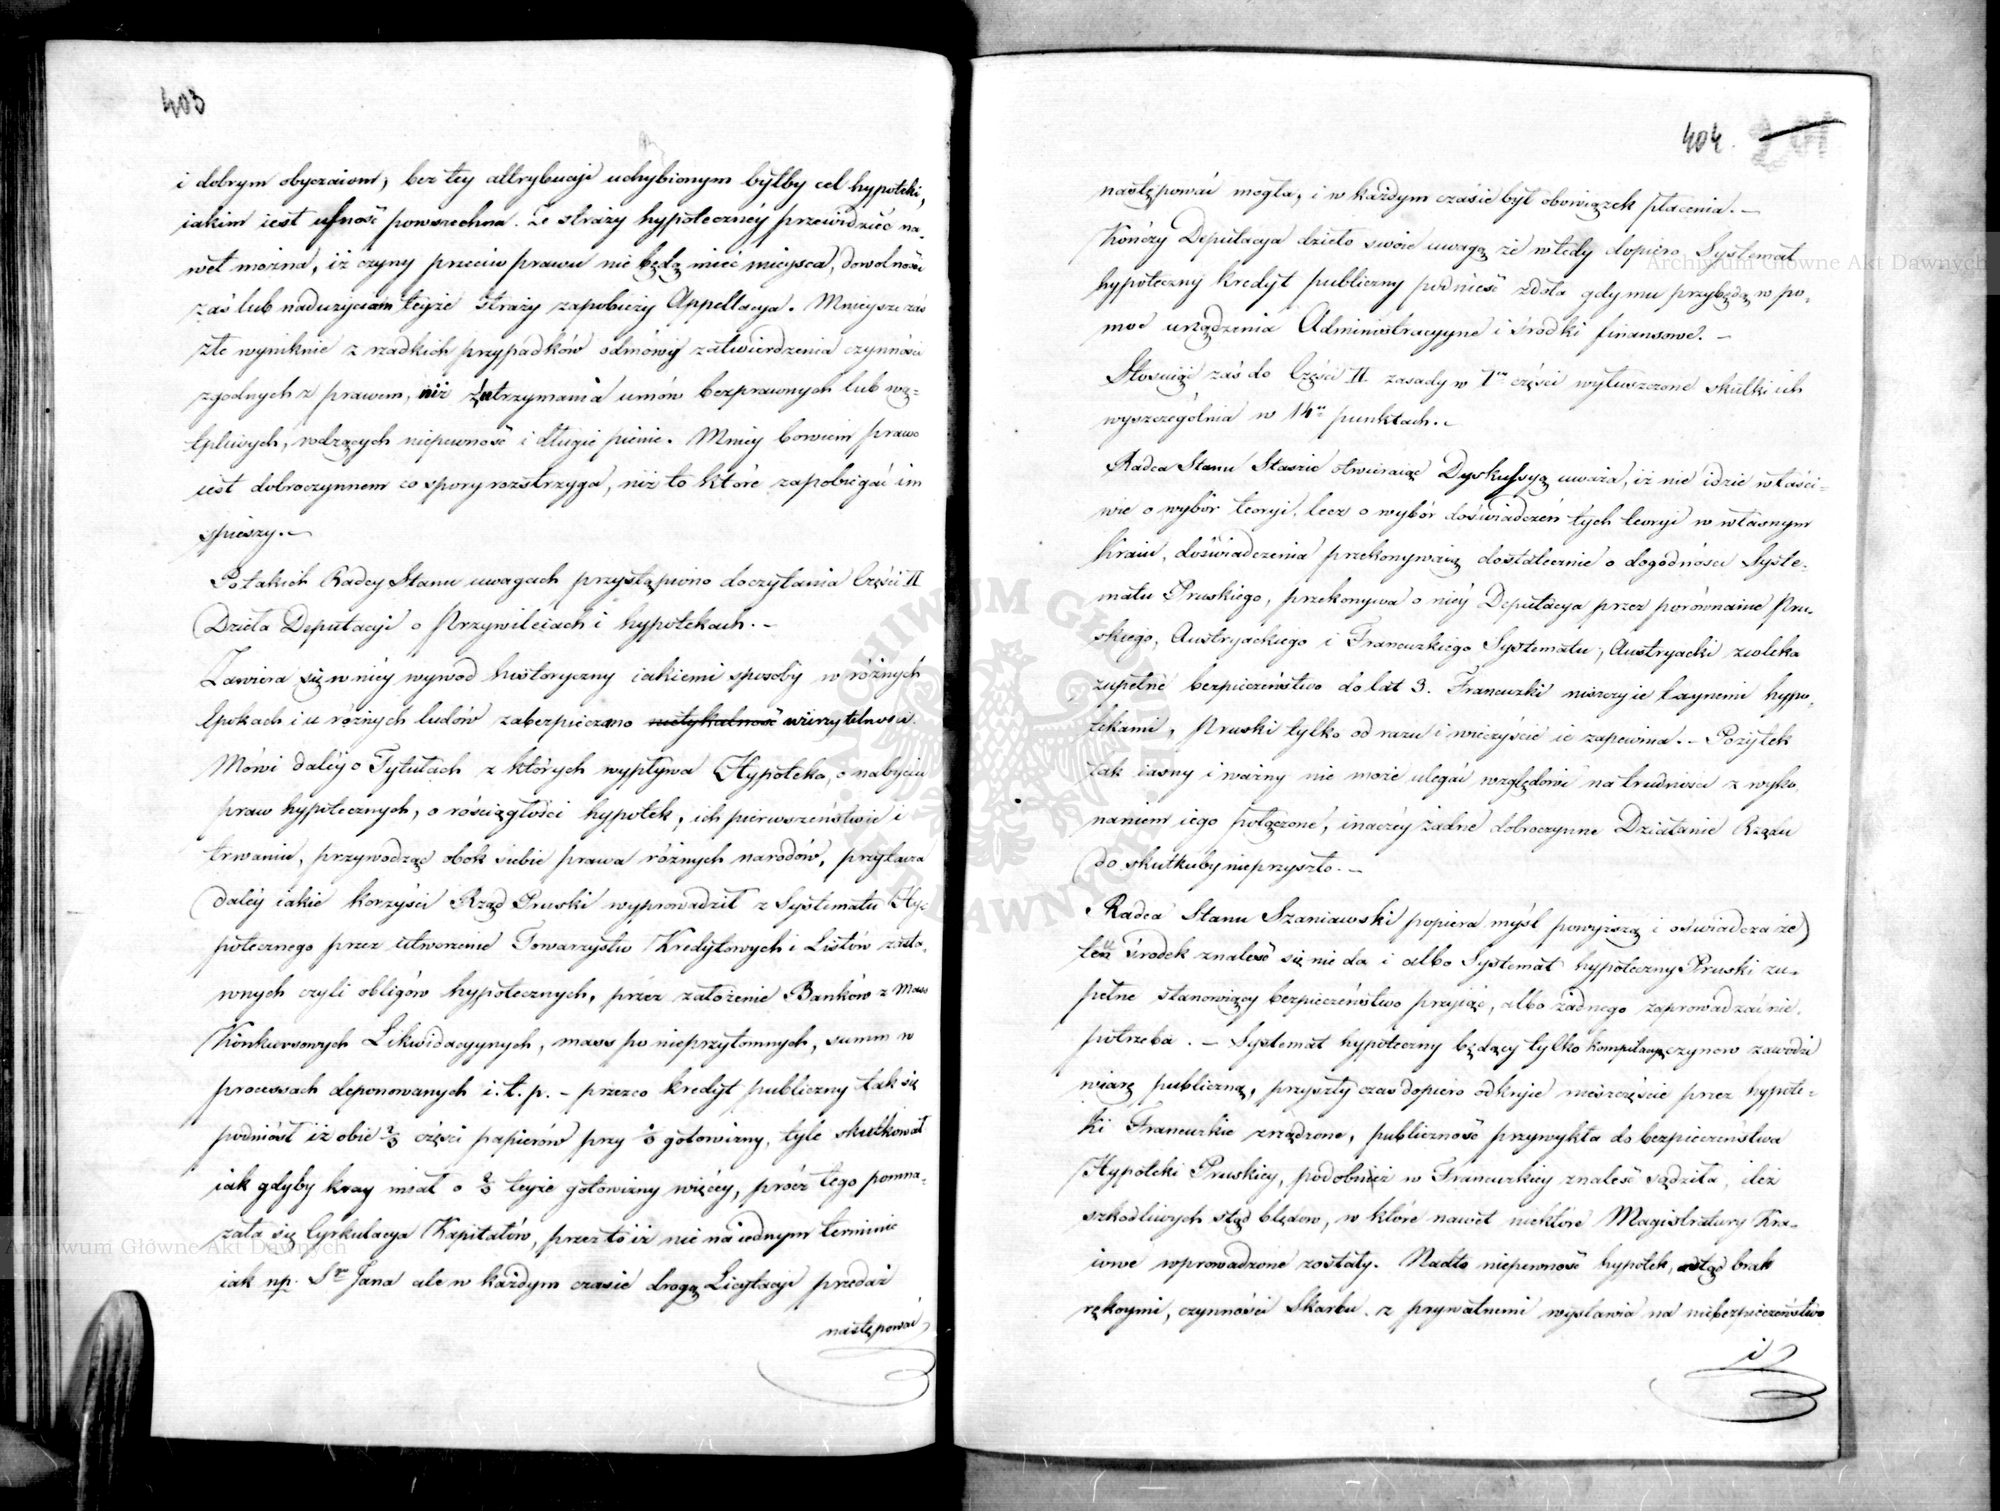 403
i dobrym obyczaiom; bez tey attrybucyi uchybionym byłby cel hypoteki,
iakim iest ufność powszechna. Ze straży hypoteczney przewidzieć na-
wet można, iż czyny przeciw prawu nie będą mieć mieysca, dowolności
zaś lub nadużyciom teyże straży zapobieży Appellacya. Mnieysze zaś
złe wyniknie z rzadkich przypadków odmowy zatwierdzenia czynności
zgodnych z prawem, niż z utrzymania umów bezprawnych lub wą-
tpliwych, rodzących niepewność i długie pienie. Mniey bowiem prawo
iest dobroczynnem co spory rozstrzyga, niż to które zapobiegać im
spieszy.—
Po takich Radcy Stanu uwagach przystąpiono do czytania Części II
Dzieła Deputacyi o Przywileiach i hypotekach.—
Zawiera się w niey wywod historyczny iakiemi sposoby w różnych
Epokach i u różnych ludów zabezpieczano nietykalność wierzytelności.
Mówi daley o Tytułach z których wypływa Hypoteka, o nabyciu
praw hypotecznych, o rościągłości hypotek, ich pierwszeństwie i
trwaniu, przywodząc obok siebie prawa różnych narodów, przytacza
daley iakie korzyści Rząd Pruski wyprowadził z Systematu Hy-
potecznego przez utworzenie Towarzystw Kredytowych i Listów zasta-
wnych czyli obligów hypotecznych, przez założenie Banków z Mass
Konkursowych Likwidacyynych, mass po nieprzytomnych, summ w
processach deponowanych i.t.p. – przezco kredyt publiczny tak się
podniósł iż obie 2/3 części papierów przy 1/3 gotowizny, tyle skutkował
iak gdyby kray miał o 2/3 teyże gotowizny więcey, prócz tego pomna-
żała się Cyrkulacya Kapitałów, przez to iż nie na iednym terminie
iak np. Sgo Jana ale w każdym czasie drogą Licytacyi przedaż
następować
404. 201
następować mogła, i w każdym czasie był obowiązek płacenia.—
Kończy Deputacya dzieło swoie uwagą że wtedy dopiero Systemat
hypoteczny kredyt publiczny podnieść zdoła gdy mu przybędą w po-
moc urządzenia Administracyyne i środki finansowe.—
Stosuiąc zaś do Części II. zasady w 1ey części wyłuszczone skutki ich
wyszczególnia w 14tu punktach.—
Radca Stanu Staszic otwieraiąc Dyskussyą uważa, iż nie idzie właści-
wie o wybór teoryi, lecz o wybór doświadczeń tych teoryi w własnym
kraiu, doświadczenia przekonywaią dostatecznie o dogodności Syste-
matu Pruskiego, przekonywa o niey Deputacya przez porównanie Pru-
skiego, Austryackiego i Francuzkiego Systematu; Austryacki zwleka
zupełne bezpieczeństwo do lat 3. Francuzki niszczy ie taynemi hypo-
tekami, Pruski tylko od razu i wieczyście ie zapewnia.— Pożytek
tak iasny i ważny nie może ulegać względowi na trudności z wyko-
naniem iego połączone, inaczey żadne dobroczynne Działanie Rządu
do skutku by nie przyszło.—
Radca Stanu Szaniawski popiera myśl powyższą i oświadcza że
tu środek znaleść się nie da i albo Systemat hypoteczny Pruski zu-
pełne stanowiący bezpieczeństwo przyiąć, albo żadnego zaprowadzać nie
potrzeba.— Systemat hypoteczny będący tylko kompilacyą czynow zawodzi
wiarę publiczną, przyszły czas dopiero odkryie nieszczęście przez hypote-
ki Francuzkie zrządzone, publiczność przywykła do bezpieczeństwa
Hypoteki Pruskiey, podobnież w Francuzkiey znaleść sądziła, ileż
szkodliwych stąd błędow, w które nawet niektóre Magistratury Kra-
iowe wprowadzone zostały. Nadto niepewność hypotek, stąd brak
rękoymi, czynności Skarbu z prywatnemi wystawia na niebezpieczeństwo
i
Archiwum Główne Akt Dawnych
Archiwum Główne Akt Dawnych
ARCHIWUM GŁÓWNE AKT DAWNYCH